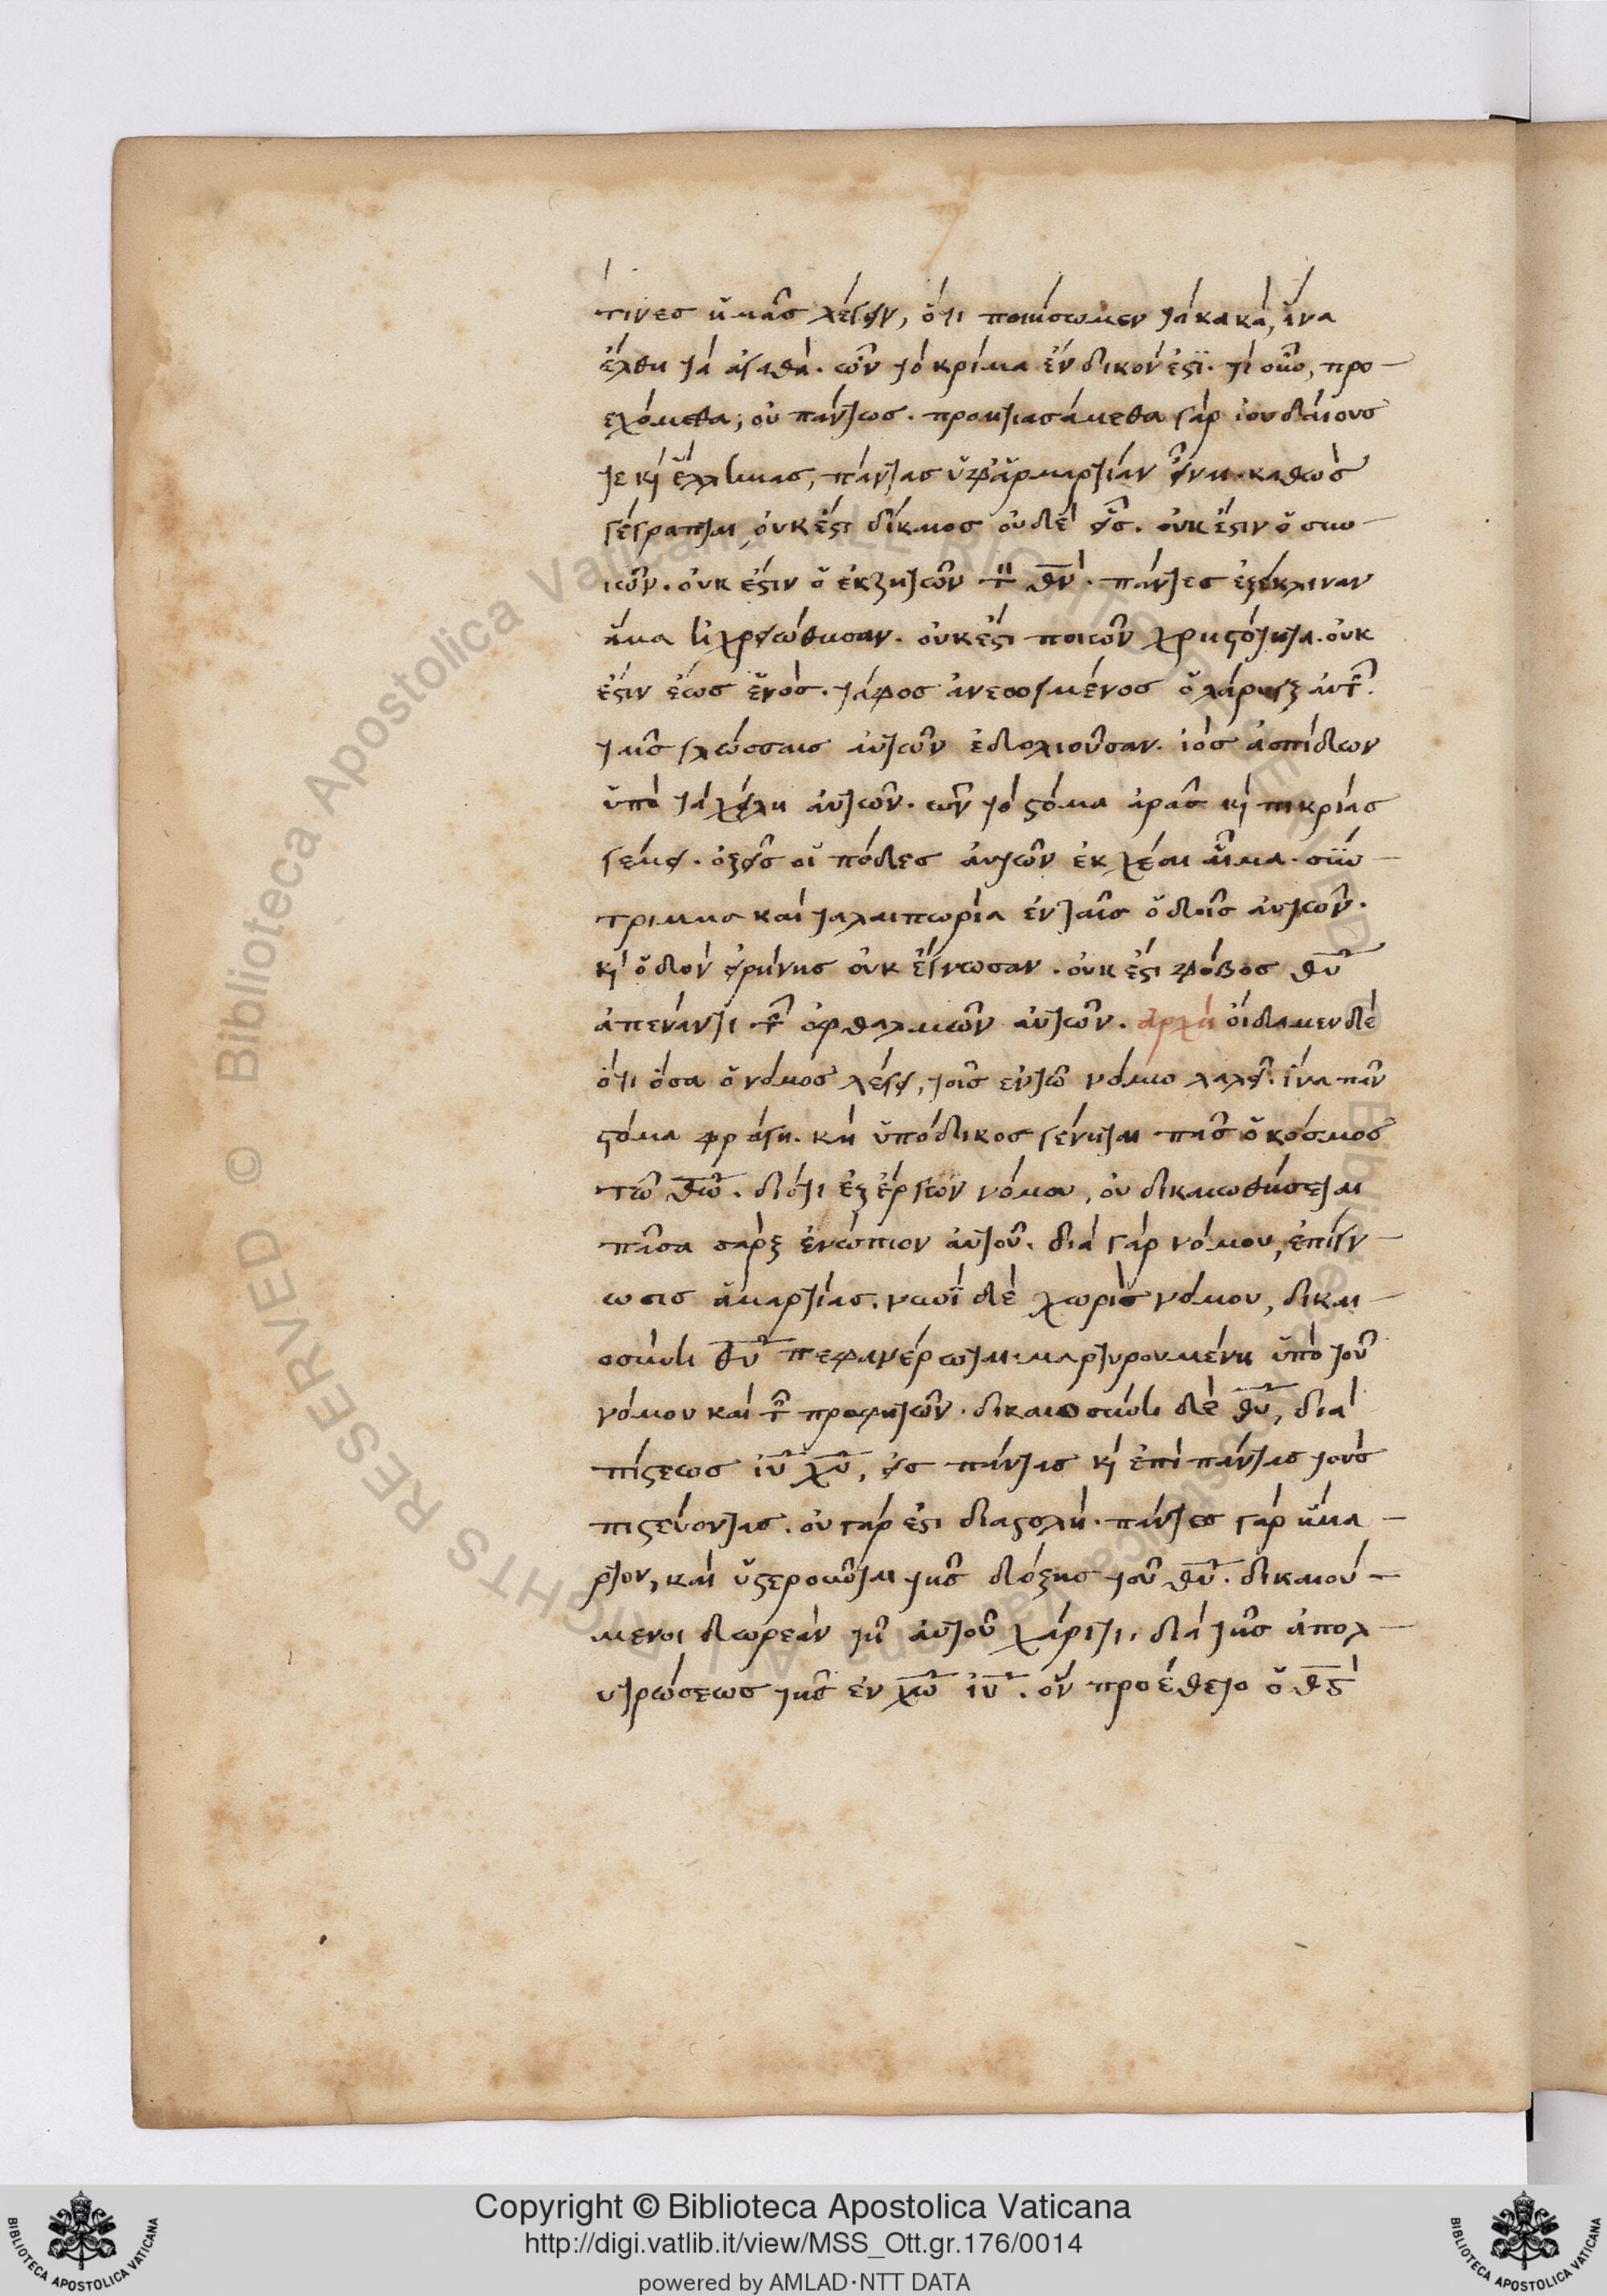 τινὲς ἡμᾶς λέγειν, ὅτι ποιήσωμεν τὰ κακὰ, ἵνα
ἔλθη τὰ ἀγαθά. ὧν τὸ κρίμα ἔνδικόν ἐστι. τί οὖν, προ
εχόμεθα; οὐ πάντως. προητιασάμεθα γὰρ ἰουδαίους
τε κ(αὶ) ἕλληνας, πάντας ὑφ' ἁρμαρτίαν εἶναι. καθὼς
γέγραπται, οὐκ ἔστι δίκαιος οὐδὲ εἷς. οὐκ ἔστιν ὁ συν
ιῶν. οὐκ ἔστιν ὁ ἐκζητῶν τὸν θν. πάντες ἐξέκλιναν
ἅμα ἠχρειώθησαν. οὐκ ἔστι ποιῶν χρηστότητα. οὐκ
ἔστιν ἕως ἑνός. τάφος ἀνεωγμένος ὁ λάρυγξ αὐτῶν.
ταῖς γλώσσαις αὐτῶν ἐδολιοῦσαν. ἰὸς ἀσπίδων
ὑπὸ τὰ χείλη αὐτῶν. ὧν τὸ στόμα ἀρᾶς κ(αὶ) πικρίας
γέμει. ὀξεῖς οἱ πόδες αὐτῶν ἐκχέαι αἷμα. σύν
τριμμα καὶ ταλαιπωρία ἐν ταῖς ὁδοῖς αὐτῶν.
κ(αὶ) ὁδὸν εἰρήνης οὐκ ἔγνωσαν. οὐκ ἔστι φόβος θυ
ἀπέναντι τῶν ὀφθαλμῶν αὐτῶν. ἀρχὴ οἴδαμεν δὲ
ὅτι ὅσα ὁ νόμος λέγει, τοῖς ἐν τῶ νόμω λαλεῖ. ἵνα πᾶν
στόμα φραγῆ. καὶ ὑπόδικος γένηται πᾶς ὁ κόσμος
τῶ θω. διότι ἐξ ἔργων νόμου, οὐ δικαιωθήσεται
πᾶσα σὰρξ ἐνώπιον αὐτοῦ. διὰ γὰρ νόμου, ἐπίγν
ωσις ἁμαρτίας. νυνὶ δὲ χωρὶς νόμου, δικαι
οσύνη θυ πεφανέρωται μαρτυρουμένη ὑπὸ τοῦ
νόμου καὶ τῶν προφητῶν. δικαιοσύνη δὲ θυ, διὰ
πίστεως ιυ χυ, εἰς πάντας κ(αὶ) ἐπὶ πάντας τοὺς
πιστεύοντας. οὐ γάρ ἐστι διαστολή. πάντες γὰρ ἥμα
ρτον, καὶ ὑστεροῦνται τῆς δόξης τοῦ θυ. δικαιού
μενοι δωρεὰν τῆ αὐτοῦ χάριτι, διὰ τῆς ἀπολ
υτρώσεως τῆς ἐν χω ιυ. ὃν προέθετο ὁ θς
Copyright © Biblioteca Apostolica Vaticana
http://digi.vatlib.it/view/MSS_Ott.gr.176/0014
powered by AMLAD·NTT DATA